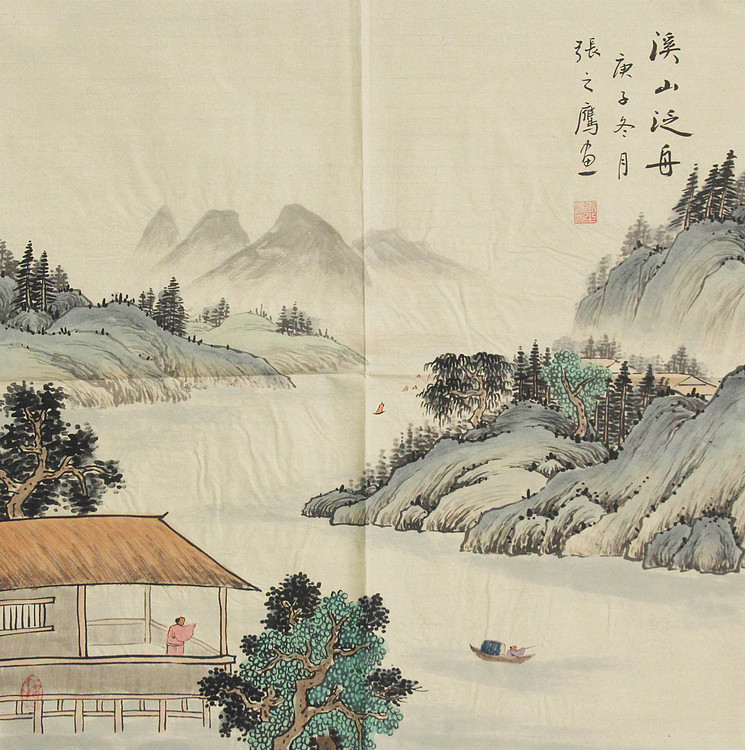 溪山泛舟
庚子冬月
張之鷹画